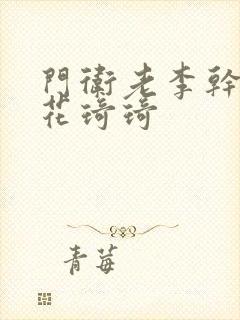 門衛老李幹
花琦琦
青莓